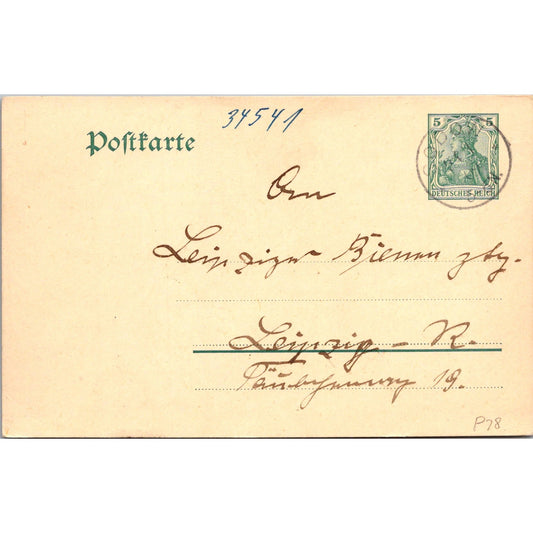 34541
Postkarte
5 5
DEUTSCHES REICH
An
Leipziger Bienen ztg.
Leipzig – R.
Täubchenweg 19.
P78